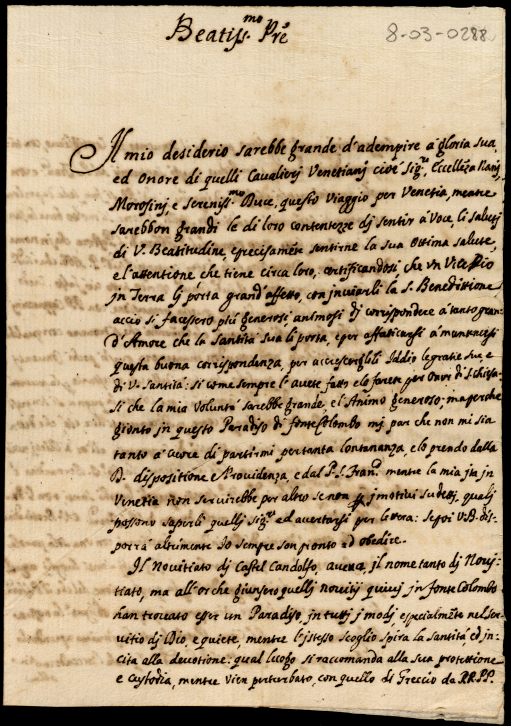 Beatiss.mo Pre
8-03-0288
Il mio desiderio sarebbe grande d'adempire à gloria sua,
ed onore di quelli Cavalierj Venetianj cioè Sig.ri Eccellenza
Morosinj, e Sereniss.mo Duce, questo Viaggio per Venetia, mentre
sarebbon grandi le di loro contentezze dj sentir à Voce, li salutj
di V. Beatitudine, e precisamẽte sentirne la sua Ottima salute,
e l'attentione che tiene circa loro; certificandosi che vn Vice Dio
jn Terra lj porta grand'affetto, con inviarli la S. Benedittione,
acciò si facessero più generosi, animosi dj corrispondere à tanto gran
d'Amore che la Santità sua li porta, e per affaticarsi à mantenersi
questa buona corrispondenza, per accrescergli Iddio le gratie sue, e
di V. Santità: si come sempre l'avete fatto e lo farete per Onor di S. Chiesa.
Si che la mia Voluntà sarebbe grande, e l'Animo generoso; ma perche
gionto jn questo Paradiso dj fonte Colombo mj par che non mi sia
tanto à cuore di partirmi per tanta lontananza, e lo prendo dalla
D. dispositione e Providenza, e dal P. S. Fran.co mentre la mia jta jn
Venetia non servirebbe per altro se non jmotivi sudettj, qualj
possono saperli quellj Sig.ri ed avertarsi per lettera: se poi V. B. dis-
porrà altrimente Io sempre son pronto ad obedire.
Il Novitiato dj Castel Gandolfo, aveva jl nome tanto dj Novi-
tiato, ma all'or che giunsero quellj novitij quivj jn fonte Colombo
han trovato esser un Paradiso, jn tuttj j modj e specialmẽte nel ser-
vitio dj Dio e quiete, mentre l'jstesso scoglio spira la Santità ed jn-
cita alla devotione: qual luogo si raccomanda alla sua protettione
e custodia, mentre vien perturbato, con quello di Greccio da P.P. PP.